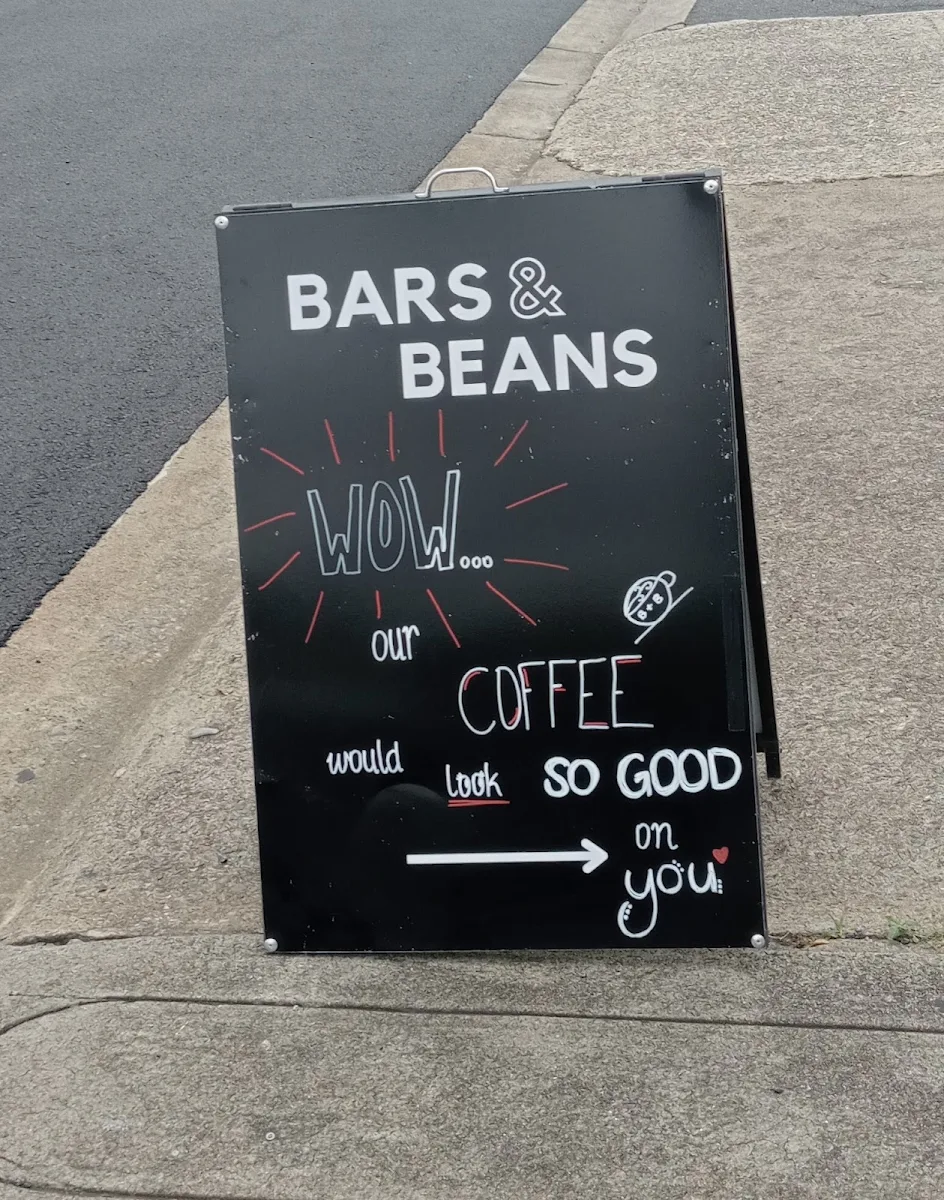 BARS &
BEANS
WOW...
our
COFFEE
would look SO GOOD
on
you